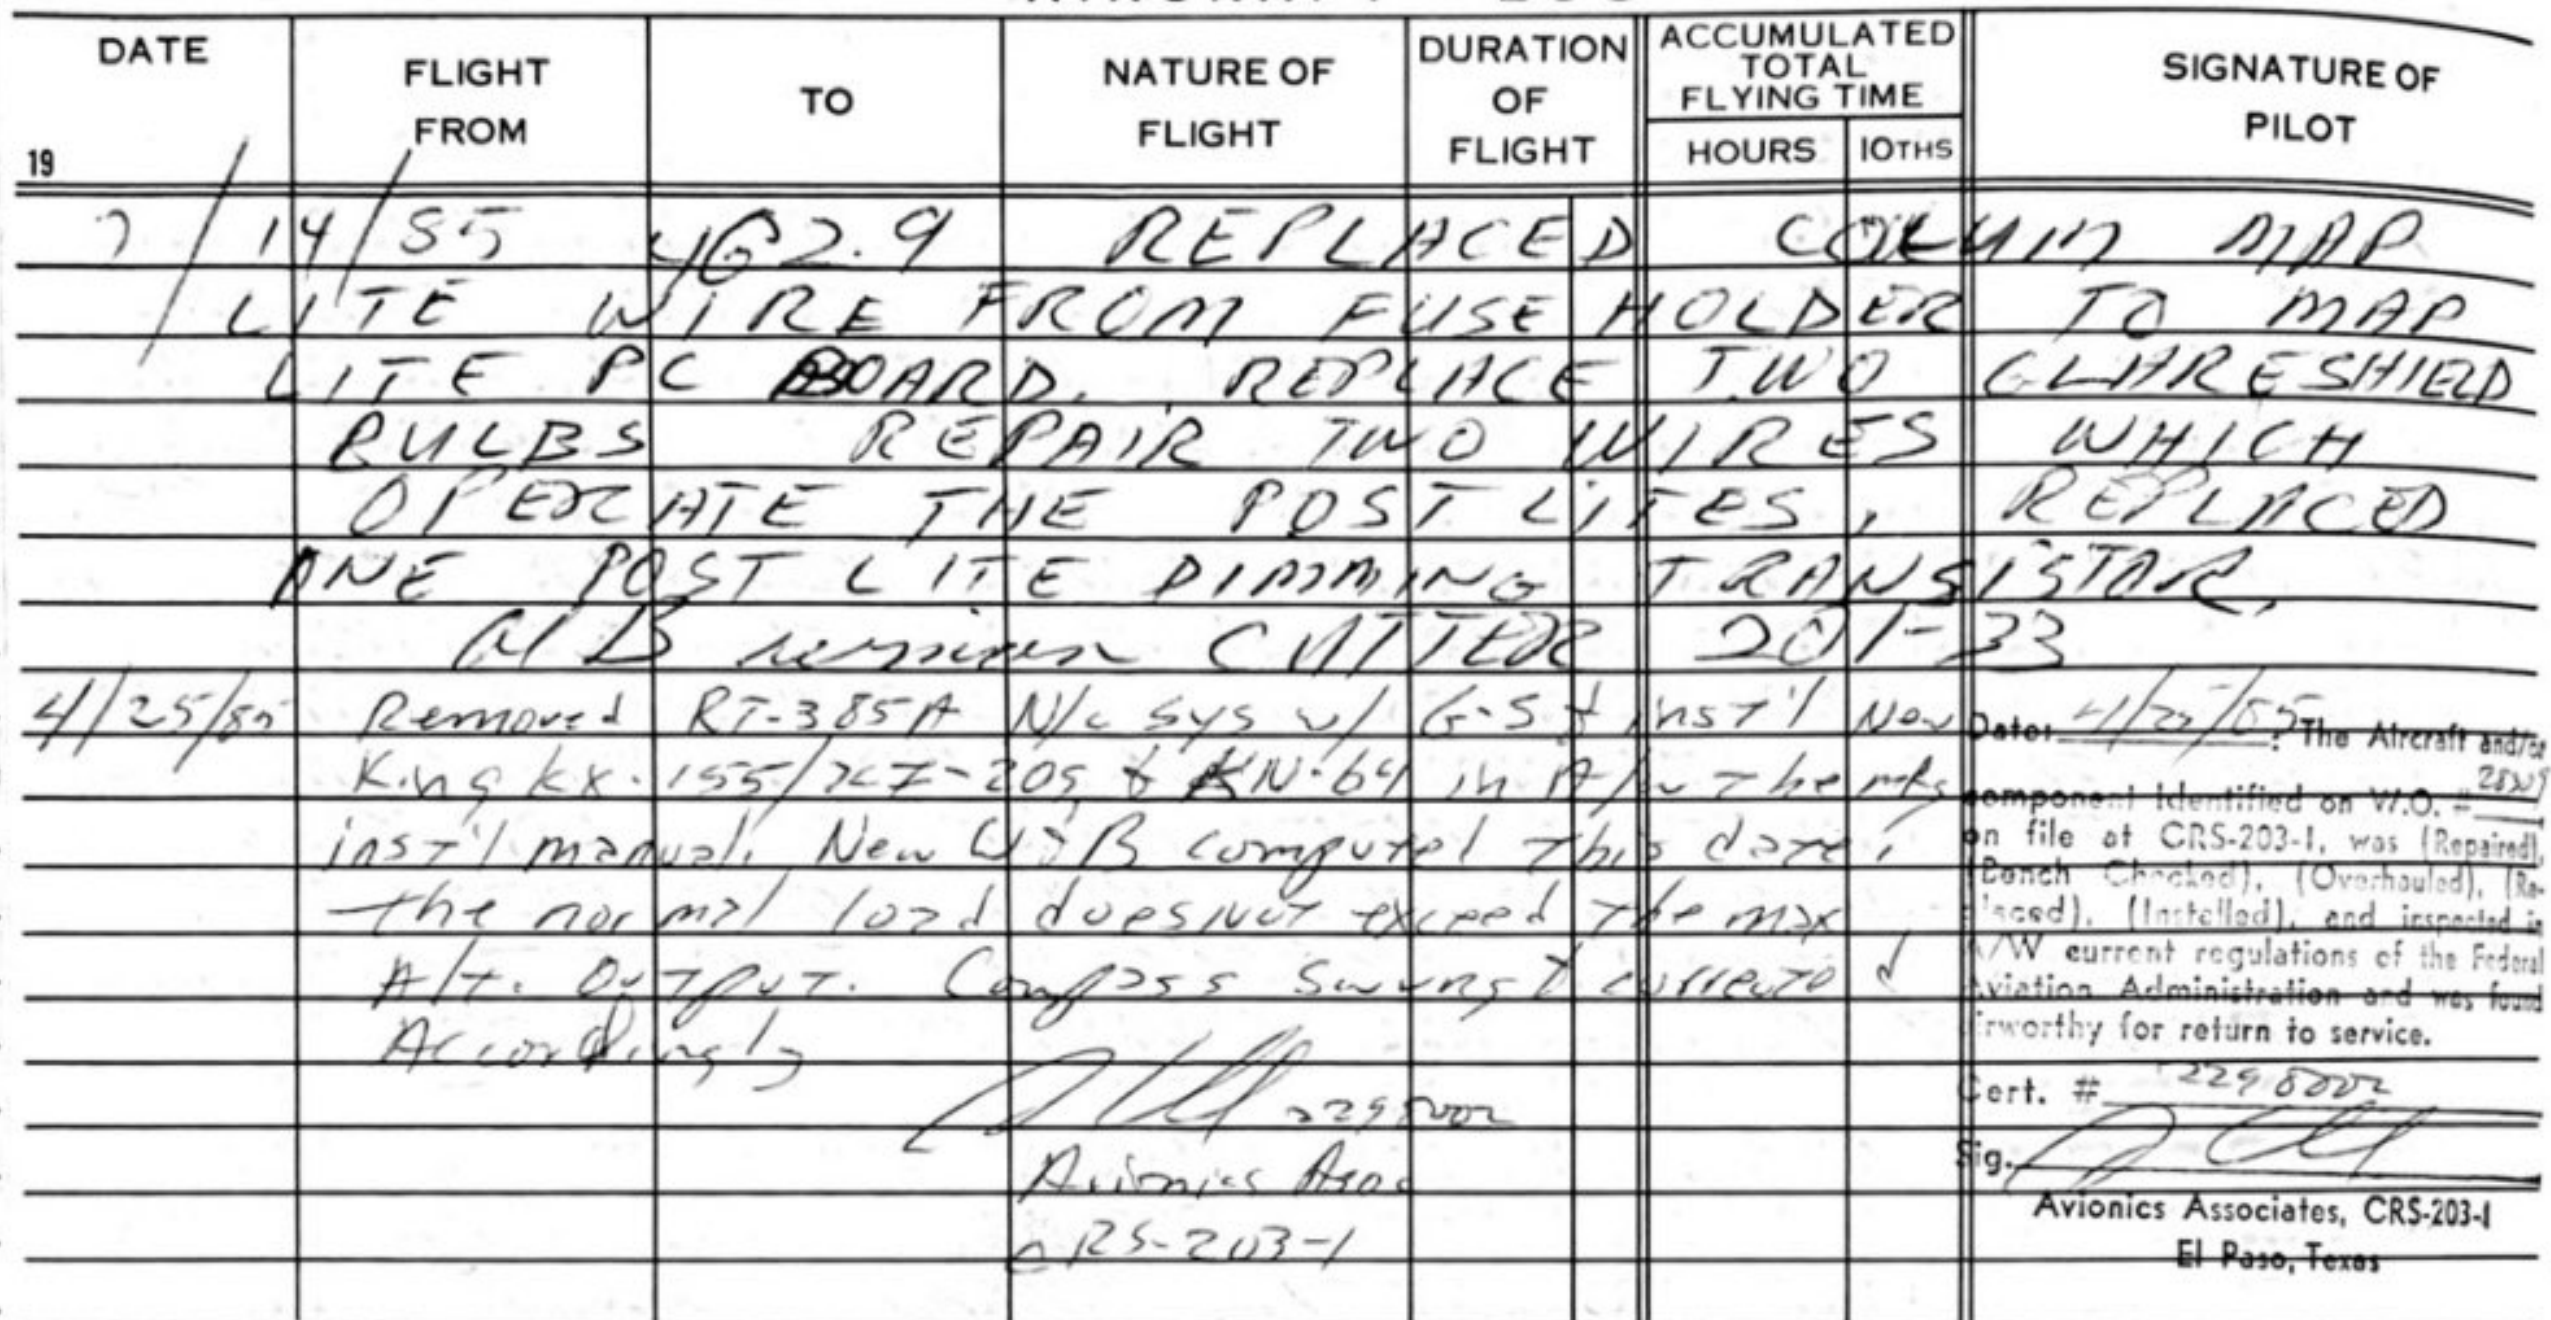 DATE
FLIGHT FROM
TO
NATURE OF FLIGHT
DURATION OF FLIGHT
ACCUMULATED TOTAL FLYING TIME
HOURS 10THS
SIGNATURE OF PILOT
19
/14/85 2.9 REPLACED COLUM MAP
LITE WIRE FROM FUSE HOLDER TO MAP
LITE PC BOARD. REPLACE TWO GLARESHIELD
BULBS REPAIR TWO WIRES WHICH
OPERATE THE POST LITES, REPLACED
ONE POST LITE DIMMING TRANSISTOR.
CUTTER 201-33
4/25/85 Removed RT-385A N/c Sys w/ G-S & inst'l New
King kx-155/ & KN-64 in A/w the mfg
inst'l manual. New W&B computed this date,
the normal load does not exceed the max
Alt. Output. Compass Swung & corrected
Accordingly
Avionics Assoc
CRS-203-1
Date: 4/25/85. The Aircraft and/or
component identified on W.O. #
on file at CRS-203-1, was (Repaired),
(Bench Checked), (Overhauled), (Re-
placed), (Installed), and inspected in
A/W current regulations of the Federal
Aviation Administration and was found
airworthy for return to service.
Cert. #
Sig.
Avionics Associates, CRS-203-1
El Paso, Texas